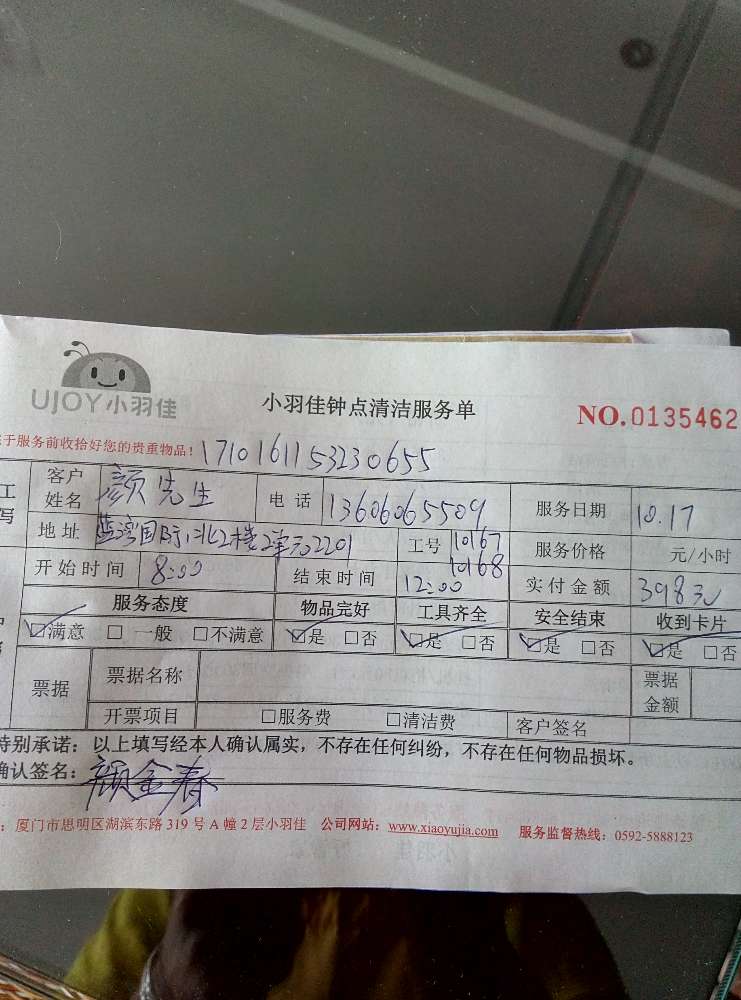 UJOY小羽佳
小羽佳钟点清洁服务单
NO.0135462
于服务前收拾好您的贵重物品! 1710161153230655
客户姓名 颜先生 电话 13606065509 服务日期 10.17
地址 蓝湾国际 2楼2单元2201 工号 10167 10168 服务价格 元/小时
开始时间 8:00 结束时间 12:00 实付金额 398元
服务态度 物品完好 工具齐全 安全结束 收到卡片
☑满意 □一般 □不满意 ☑是 □否 ☑是 □否 ☑是 □否 ☑是 □否
票据 票据名称 票据金额
开票项目 □服务费 □清洁费 客户签名
特别承诺:以上填写经本人确认属实,不存在任何纠纷,不存在任何物品损坏。
确认签名:颜金春
:厦门市思明区湖滨东路319号A幢2层小羽佳 公司网站:www.xiaoyujia.com 服务监督热线:0592-5888123